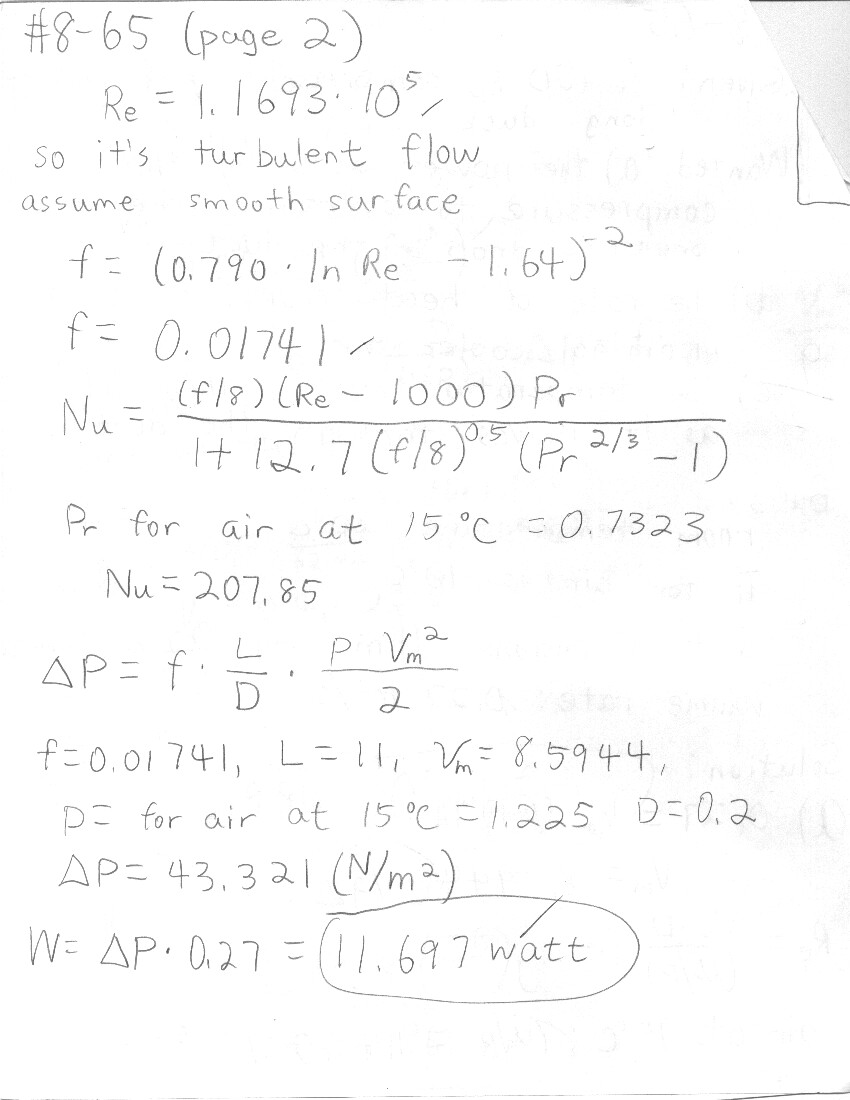 #8-65 (page 2)
Re = 1.1693·10^5
so it's turbulent flow
assume smooth surface
f = (0.790 · ln Re - 1.64)^-2
f = 0.01741
Nu = (f/8)(Re - 1000) Pr / 1+12.7(f/8)^0.5 (Pr^2/3 - 1)
Pr for air at 15°C = 0.7323
Nu = 207.85
ΔP = f · L/D · ρ Vm^2/2
f=0.01741, L=11, Vm=8.5944,
ρ= for air at 15°C = 1.225 D=0.2
ΔP= 43.321 (N/m²)
W= ΔP· 0.27 = 11.697 watt